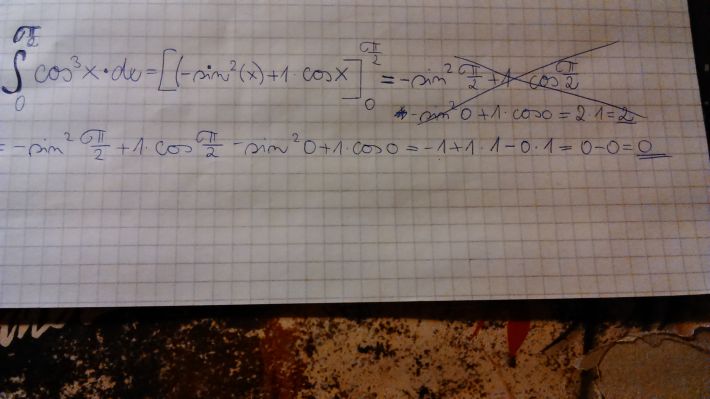 ∫₀^(π/2) cos³x·dx = [(-sin²(x)+1·cosx]₀^(π/2) = -sin² π/2 + 1· cos π/2
-sin²0+1·cos0 = 2·1 = 2
= -sin² π/2 + 1· cos π/2 - sin²0 + 1· cos0 = -1+1·1-0·1 = 0-0 = 0